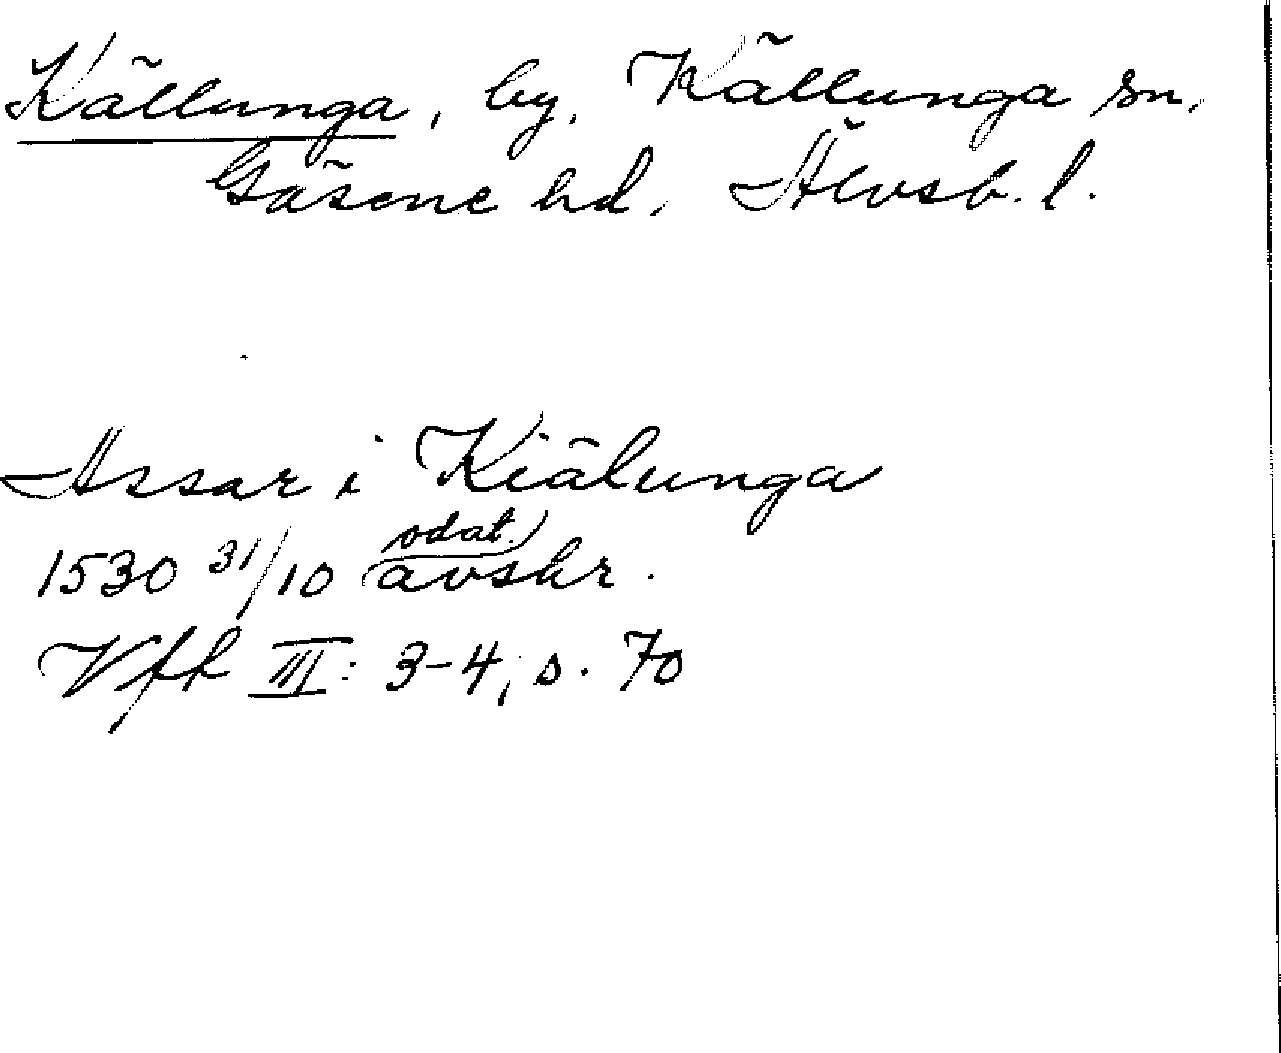 Källunga, by, Källunga sn,
Gäsene hd, Älvsb. l.
Assar i Kiälunga
1530 31/10 odat. avskr.
Vfk III: 3-4, s. 70